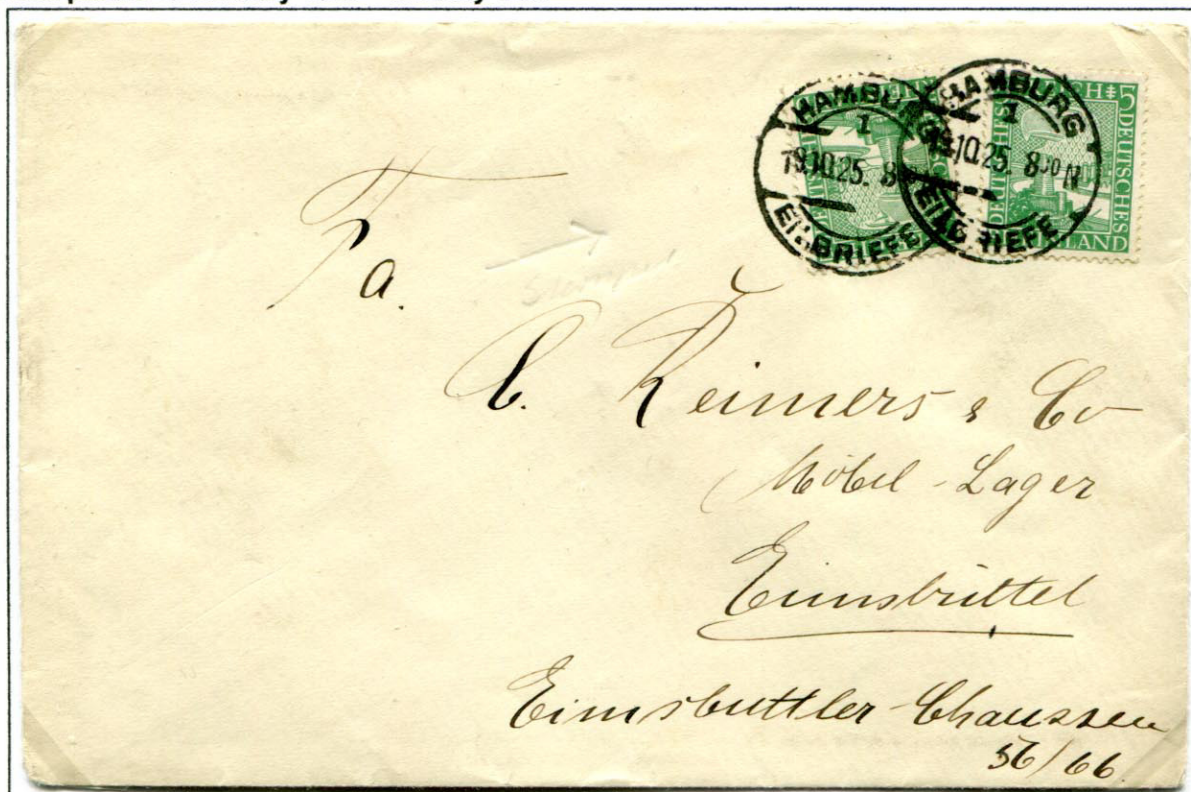 HAMBURG
1
19.10.25. 8
EILBRIEFE
HAMBURG
1
19.10.25. 8³⁰ N
EILBRIEFE
5 DEUTSCHES
Fa.
C. Reimers & Co
Möbel-Lager
Eimsbüttel
Eimsbuttler Chaussee
56/66